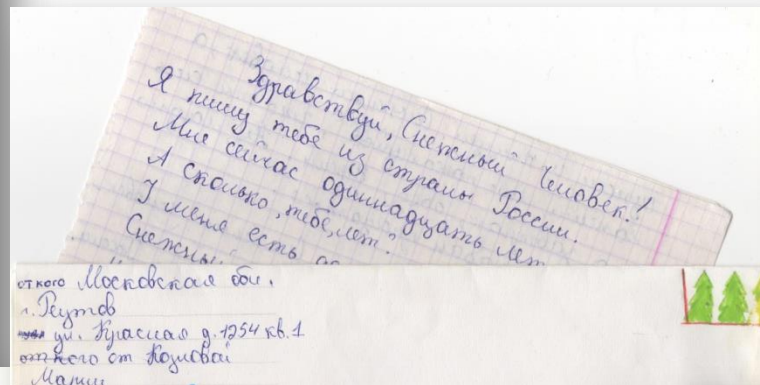 Здравствуй, Снежный Человек!
Я пишу тебе из страны России.
Мне сейчас одиннадцать лет
А сколько, тебе, лет?
У меня есть
Снежный
от кого Московская обл.
г. Реутов
ул. Красная д. 1254 кв. 1
от Козловой
Марии